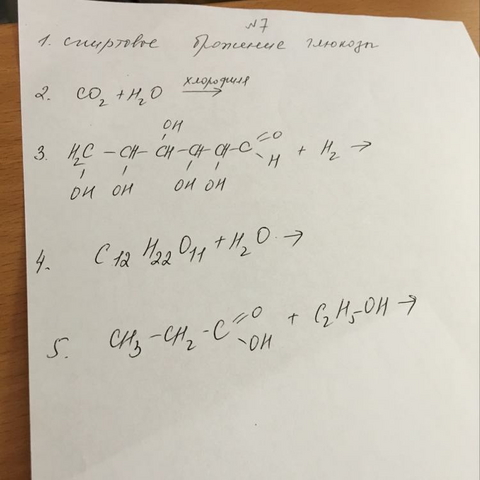 №7
1. спиртовое брожение глюкозы
2. CO₂ + H₂O хлорофилл →
OH
3. H₂C – CH – CH – CH – CH – C =O – H + H₂ →
OH OH OH OH
4. C₁₂ H₂₂ O₁₁ + H₂O →
5. CH₃ – CH₂ – C =O – OH + C₂H₅–OH →